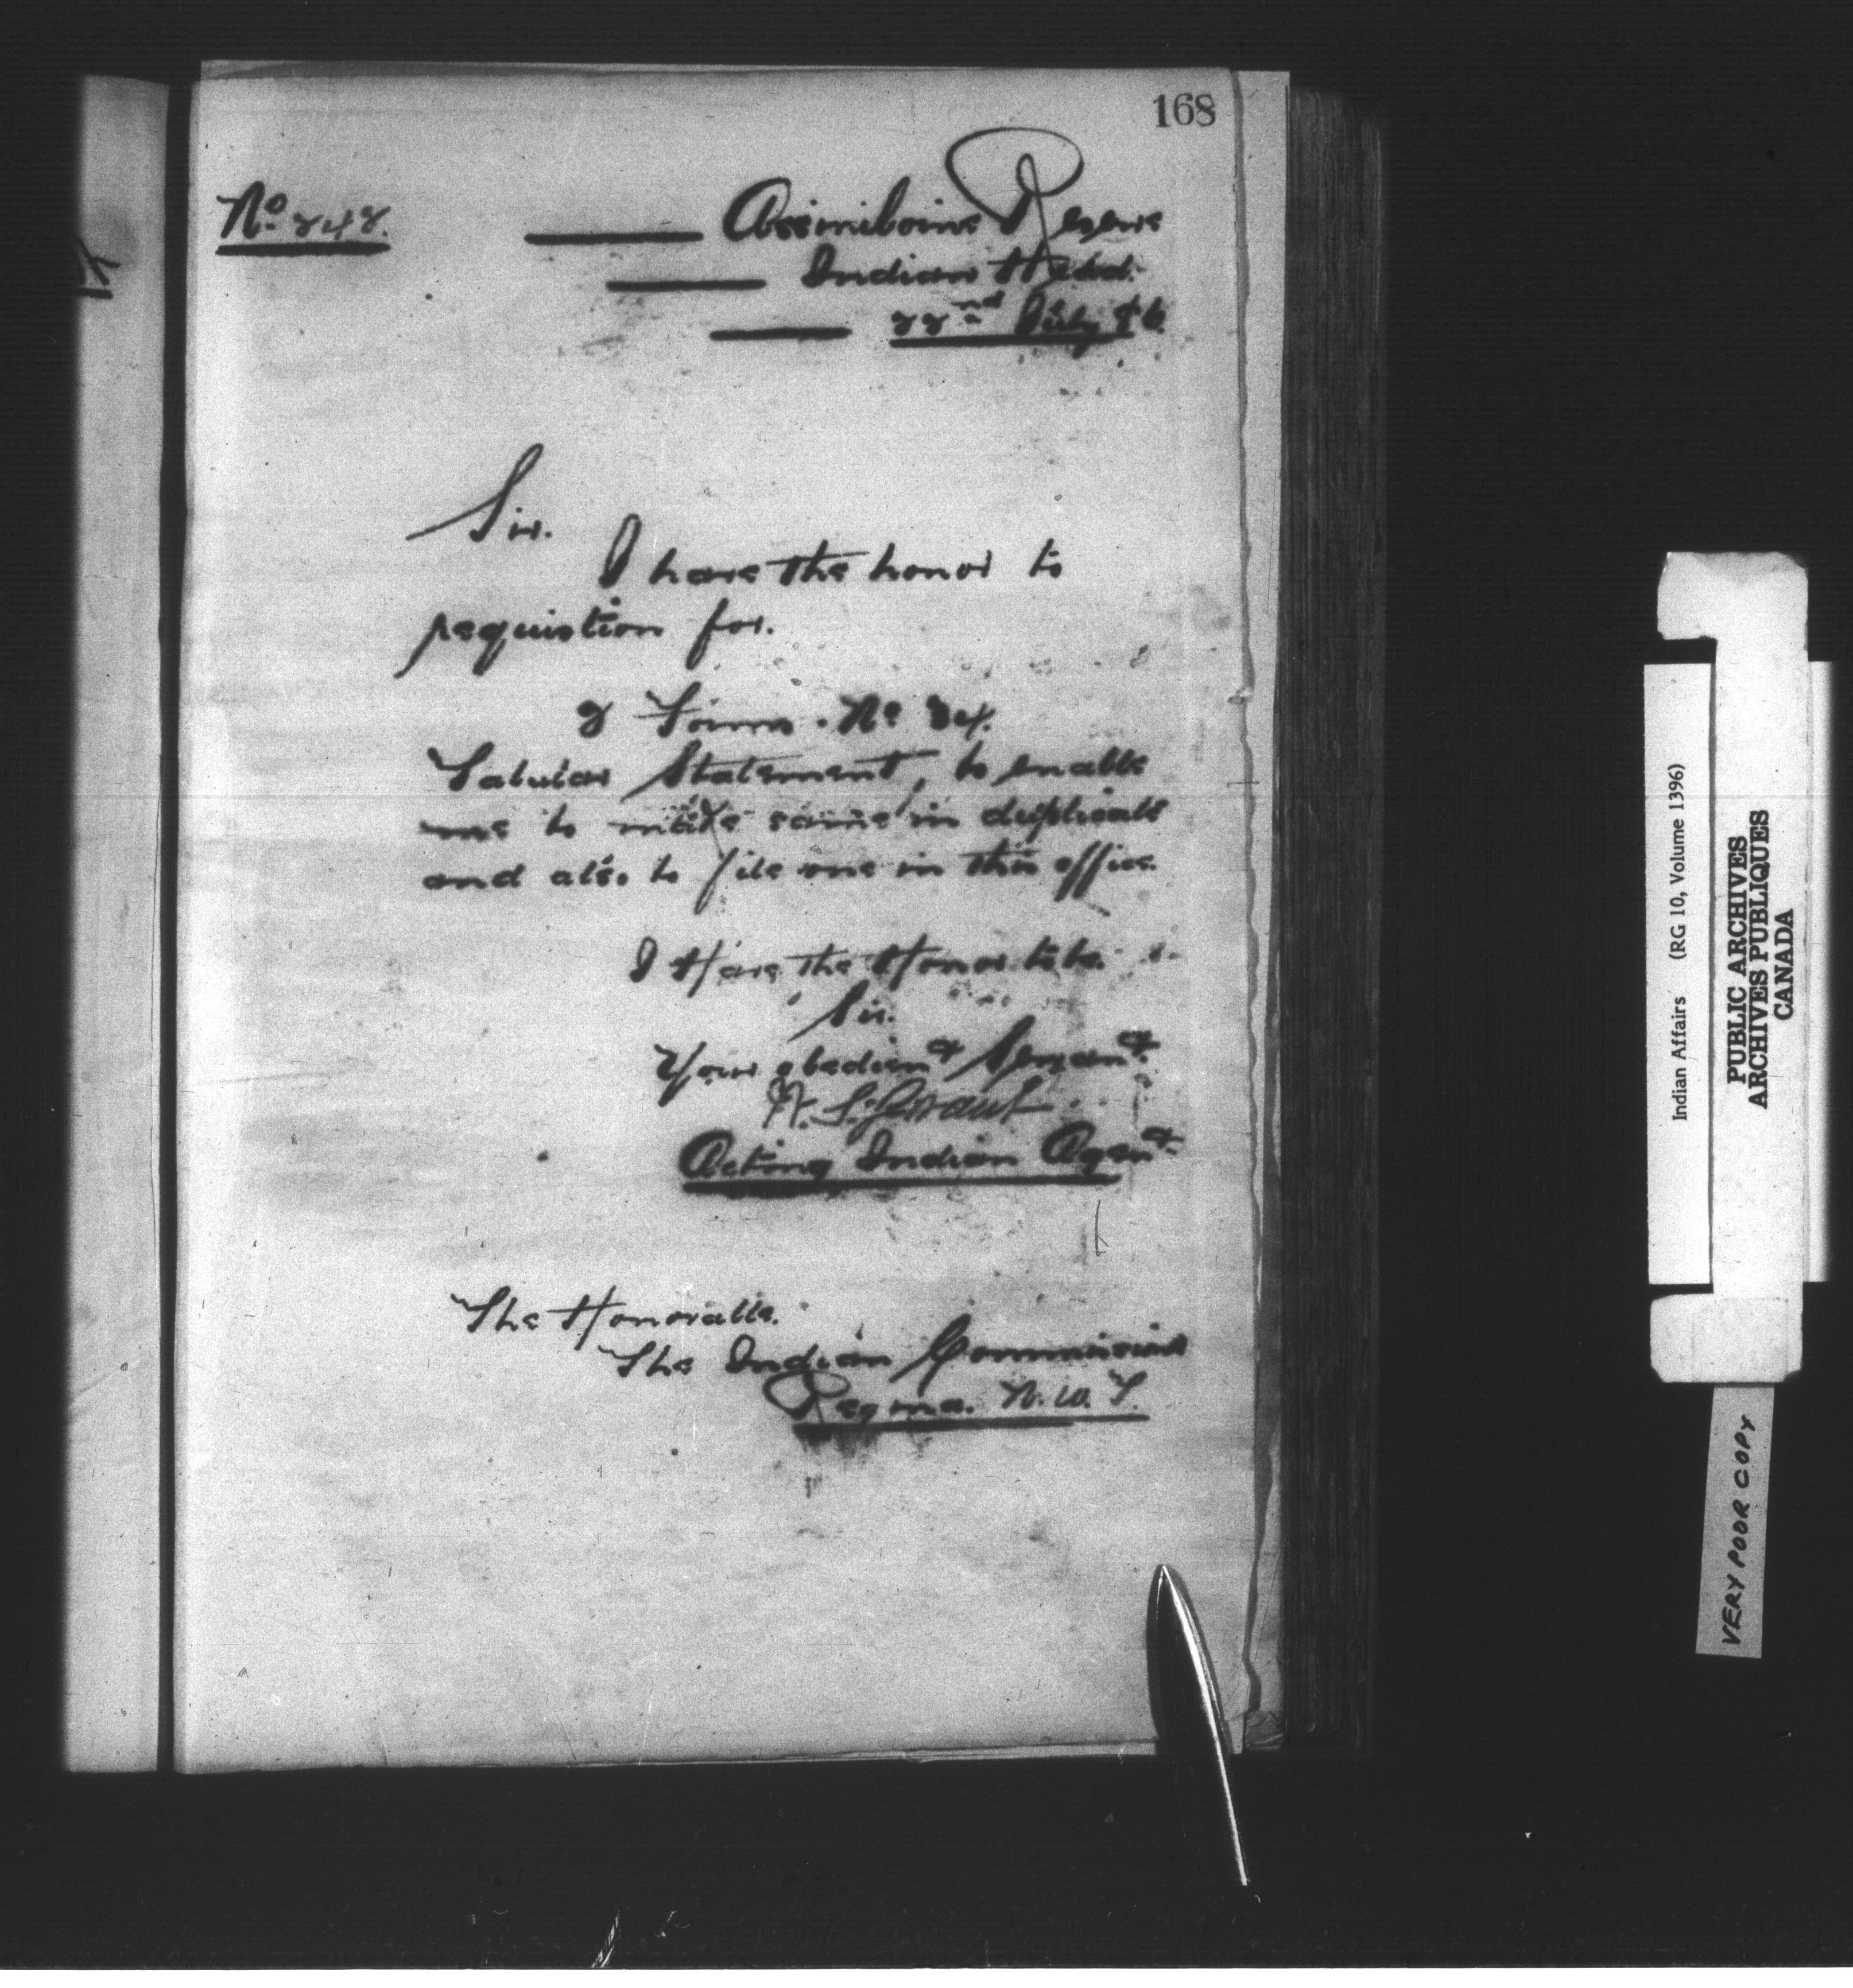 168
No 242.
Assiniboine Reserve
Indian Head.
22nd July 86.
Sir.
I have the honor to
requistion for.
2 Forms. No 34.
Tabular Statement, to enable
me to make same in duplicate
and also to file one in this office
I Have the Honor to be.
Sir.
Your obedient Servant.
W. S. Grant
Acting Indian Agent.
The Honorable.
The Indian Commissioner
Regina. N. W. T.
Indian Affairs (RG 10, Volume 1396)
PUBLIC ARCHIVES
ARCHIVES PUBLIQUES
CANADA
VERY POOR COPY